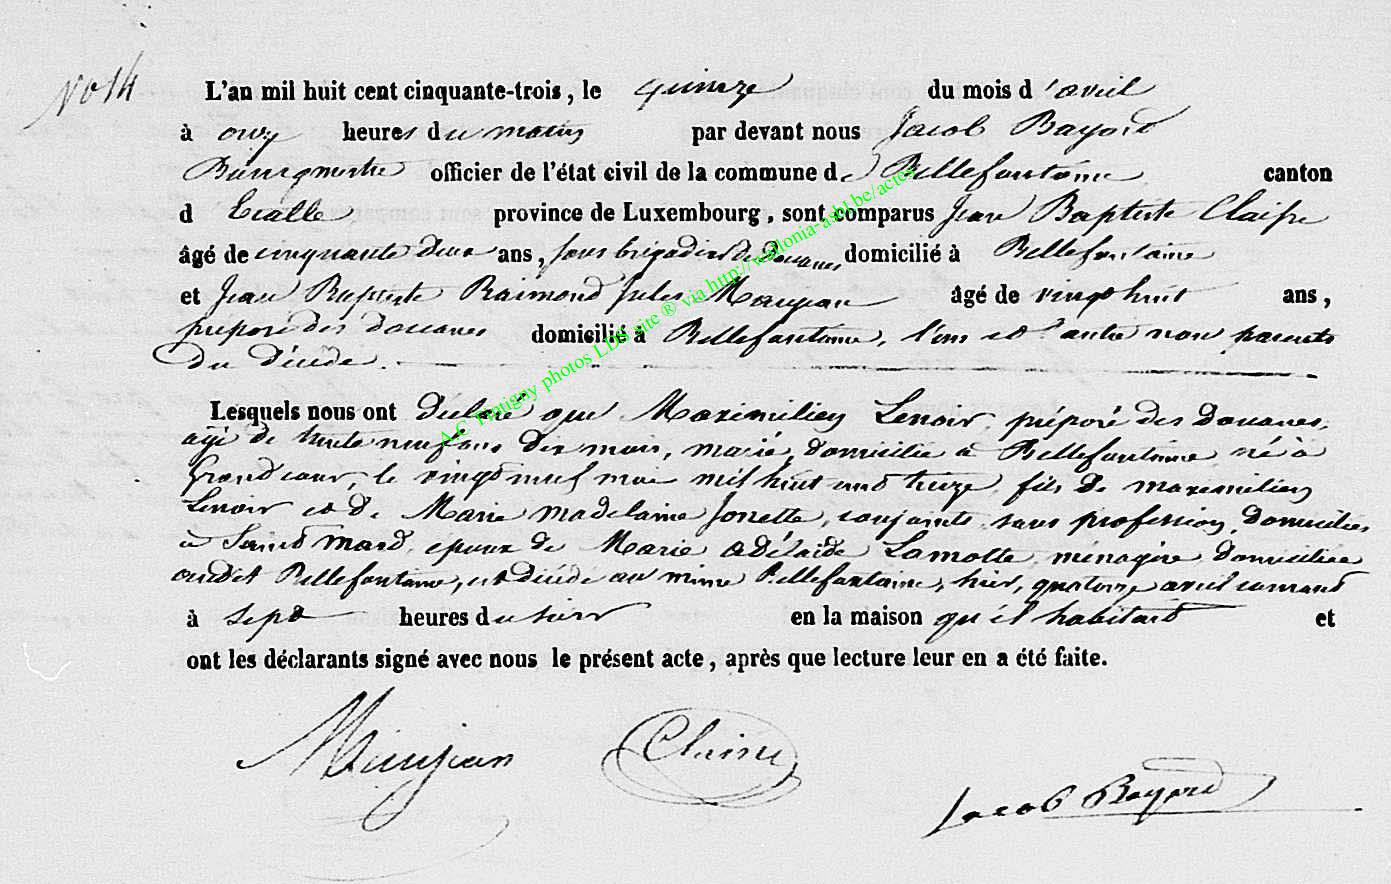 No 14
L'an mil huit cent cinquante-trois, le quinze du mois d'avril
à onze heures du matin par devant nous Jacob Bayard
Bourgmestre officier de l'état civil de la commune de Bellefontaine canton
d'Etalle province de Luxembourg, sont comparus Jean Baptiste Claisse
âgé de cinquante deux ans, sous brigadier de douanes domicilié à Bellefontaine
et Jean Baptiste Raimond Jules Maujean âgé de vingt huit ans,
préposé des douanes domicilié à Bellefontaine, l'un et l'autre non parents
du décédé.
Lesquels nous ont déclaré que Maximilien Lenoir, préposé des Douanes,
agé de trente neuf ans dix mois, marié, domicilié à Bellefontaine né à
Grandcour, le vingt neuf mai mil huit cent treize, fils de Maximilien
Lenoir et de Marie Madelaine Jonette, conjoints, sans profession, domiciliés
à Saint Mard, époux de Marie Adélaïde Lamotte, ménagère domiciliée
audit Bellefontaine, est décédé au même Bellefontaine, hier, quatorze avril courant
à sept heures du soir en la maison qu'il habitait et
ont les déclarants signé avec nous le présent acte, après que lecture leur en a été faite.
Maujean Claisse
Jacob Bayard
A.C. Tintigny photos LDS site ® via http://wallonia-asbl.be/actes